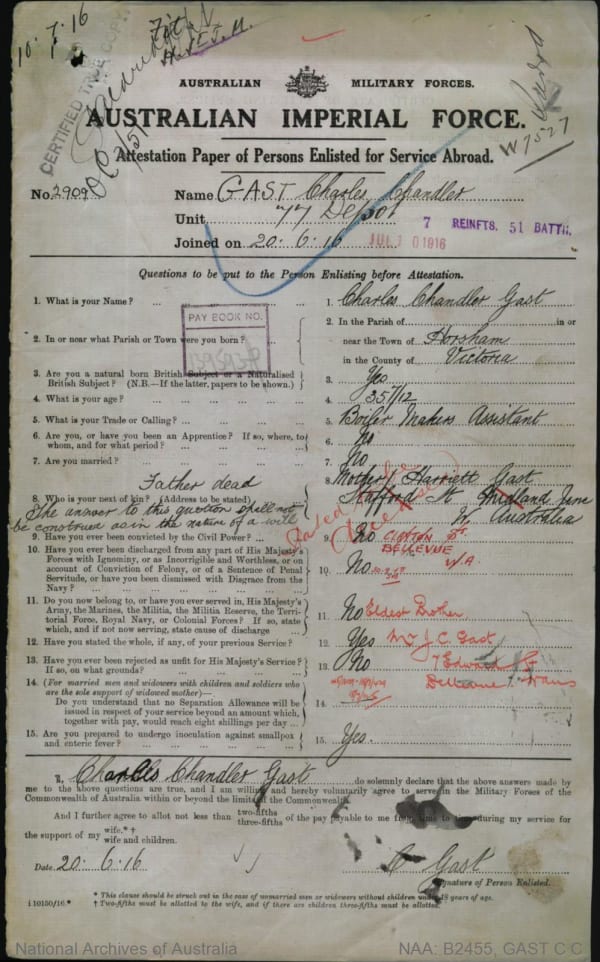 10.7.16
CERTIFIED TRUE COPY
W7527
AUSTRALIAN MILITARY FORCES.
AUSTRALIAN IMPERIAL FORCE.
Attestation Paper of Persons Enlisted for Service Abroad.
No. 2909 Name GAST Charles Chandler
Unit 77 Depot
7 REINFTS. 51 BATTN.
Joined on 20.6.16 JUL 10 1916
Questions to be put to the Person Enlisting before Attestation.
PAY BOOK NO.
1. What is your Name? ... 1. Charles Chandler Gast
2. In or near what Parish or Town were you born? ... 2. In the Parish of in or
near the Town of Horsham
in the County of Victoria
3. Are you a natural born British Subject or a Naturalised
British Subject? (N.B.—If the latter, papers to be shown.) 3. Yes
4. What is your age? ... 4. 35 7/12
5. What is your Trade or Calling? ... 5. Boiler Makers Assistant
6. Are you, or have you been an Apprentice? If so, where, to
whom, and for what period? ... 6. No
7. Are you married? ... 7. No
Father dead
8. Who is your next of kin? (Address to be stated) 8. Mother Harriett Gast
Stafford St Midland Junc
W. Australia
The answer to this question shall not
be construed as in the nature of a will
9. Have you ever been convicted by the Civil Power? ... 9. No
CLAYTON ST.
BELLEVUE
W/A
10. Have you ever been discharged from any part of His Majesty's
Forces with Ignominy, or as Incorrigible and Worthless, or on
account of Conviction of Felony, or of a Sentence of Penal
Servitude, or have you been Dismissed with Disgrace from the
Navy? ... 10. No
11. Do you now belong to, or have you ever served in, His Majesty's
Army, the Marines, the Militia, the Militia Reserve, the Terri-
torial Force, Royal Navy, or Colonial Forces? If so, state
which, and if not now serving, state cause of discharge 11. No
Eldest Brother
12. Have you stated the whole, if any, of your previous Service? 12. Yes
Mr J. C. Gast
13. Have you ever been rejected as unfit for His Majesty's Service?
If so, on what grounds? 13. No
7 Edward St
14. (For married men and widowers with children and soldiers who
are the sole support of widowed mother)—
Do you understand that no Separation Allowance will be
issued in respect of your service beyond an amount which,
together with pay, would reach eight shillings per day ... 14.
15. Are you prepared to undergo inoculation against smallpox
and enteric fever? 15. Yes.
I, Charles Chandler Gast do solemnly declare that the above answers made by
me to the above questions are true, and I am willing and hereby voluntarily agree to serve in the Military Forces of the
Commonwealth of Australia within or beyond the limits of the Commonwealth.
And I further agree to allot not less than two-fifths three-fifths of the pay payable to me from time to time during my service for
the support of my wife.*† wife and children.
Date 20.6.16 C Gast
Signature of Person Enlisted.
* This clause should be struck out in the case of unmarried men or widowers without children under 18 years of age.
† Two-fifths must be allotted to the wife, and if there are children three-fifths must be allotted.
i 10150/16.*
National Archives of Australia NAA: B2455, GAST C C